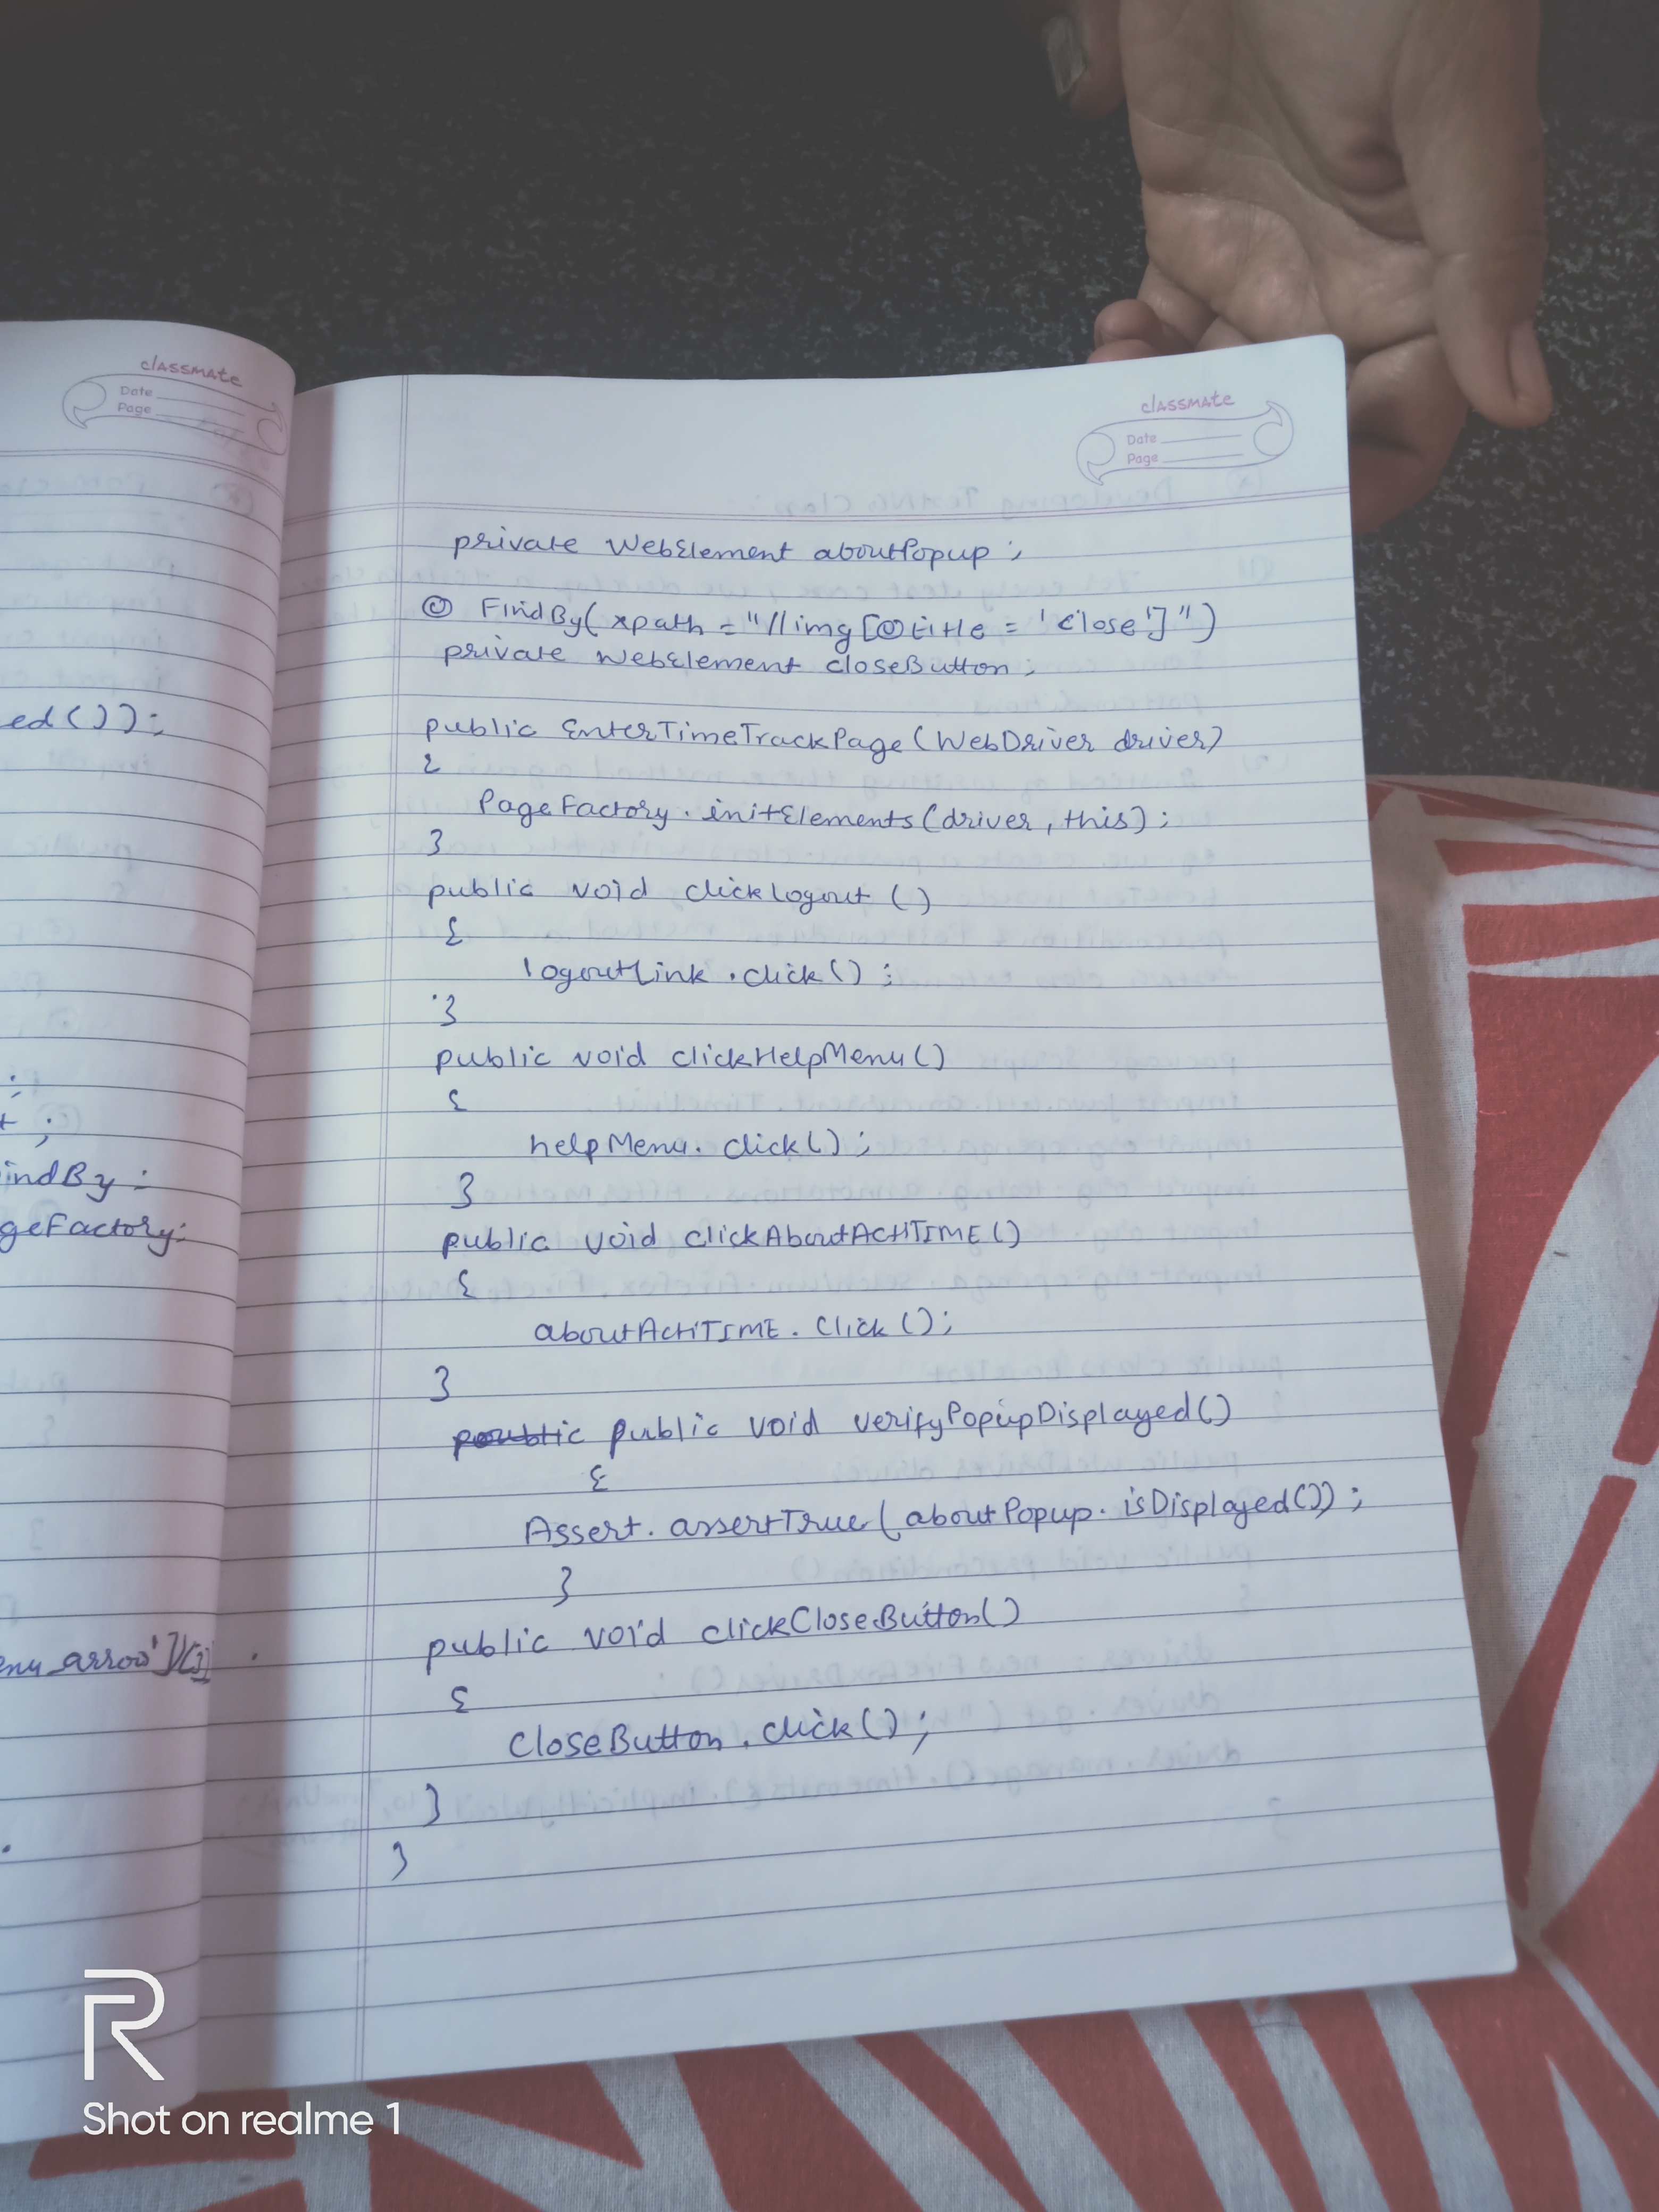 classmate
Date
Page
ed());
;
t ;
indBy ;
geFactory;
enu_arrow'])[3]
classmate
Date
Page
private WebElement aboutPopup ;
@ FindBy( xpath = "//img[@title = 'close']")
private WebElement closeButton ;
public EnterTimeTrackPage(WebDriver driver)
{
PageFactory . initElements(driver, this) ;
}
public void clickLogout ()
{
logoutLink .click() ;
}
public void clickHelpMenu()
{
helpMenu. click() ;
}
public void clickAboutActiTIME()
{
aboutActiTIME . Click ();
}
public void verifyPopupDisplayed()
{
Assert. assertTrue( aboutPopup. isDisplayed()) ;
}
public void clickCloseButton()
{
CloseButton . click() ;
}
}
R
Shot on realme 1